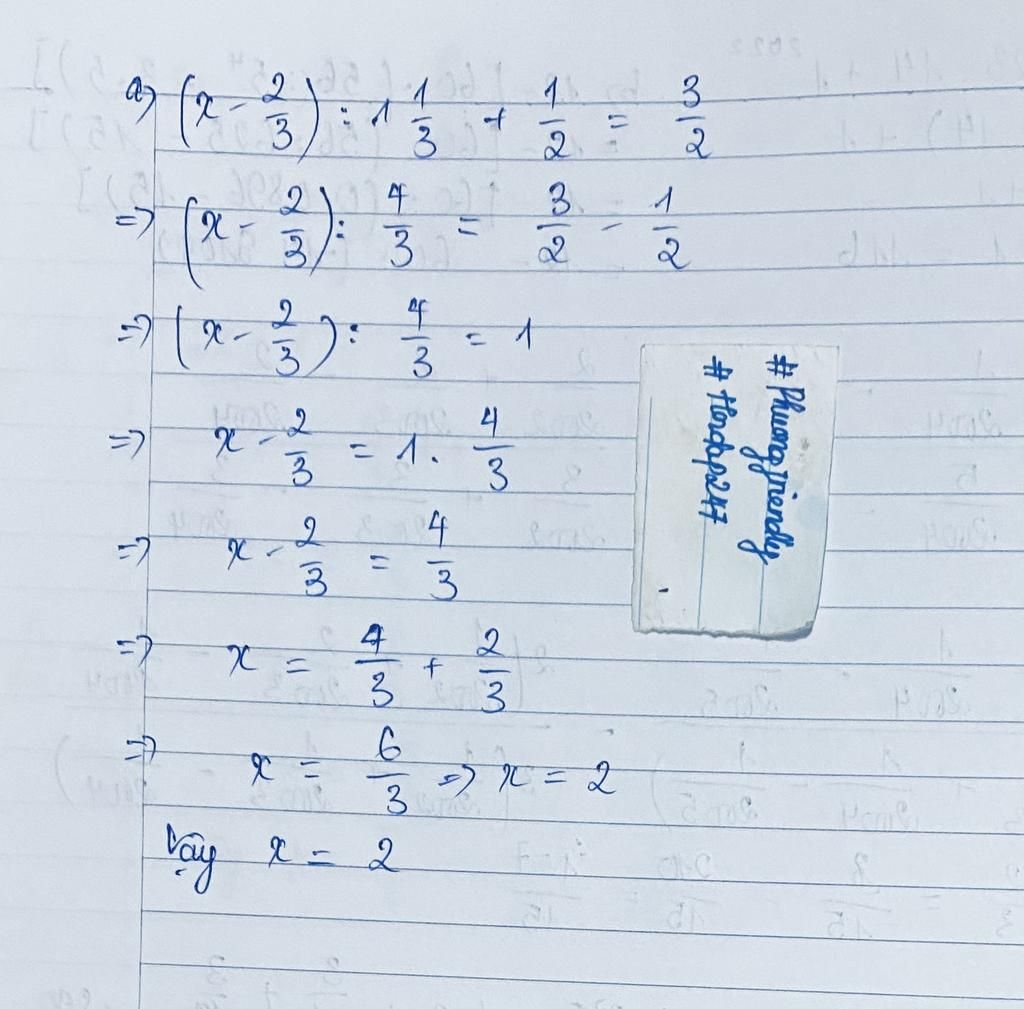 a) (x - 2/3) : 1 1/3 + 1/2 = 3/2
=> (x - 2/3) : 4/3 = 3/2 - 1/2
=> (x - 2/3) : 4/3 = 1
=> x - 2/3 = 1 . 4/3
=> x - 2/3 = 4/3
=> x = 4/3 + 2/3
=> x = 6/3 => x = 2
Vậy x = 2
#Phuongfriendly
#Hoidap247